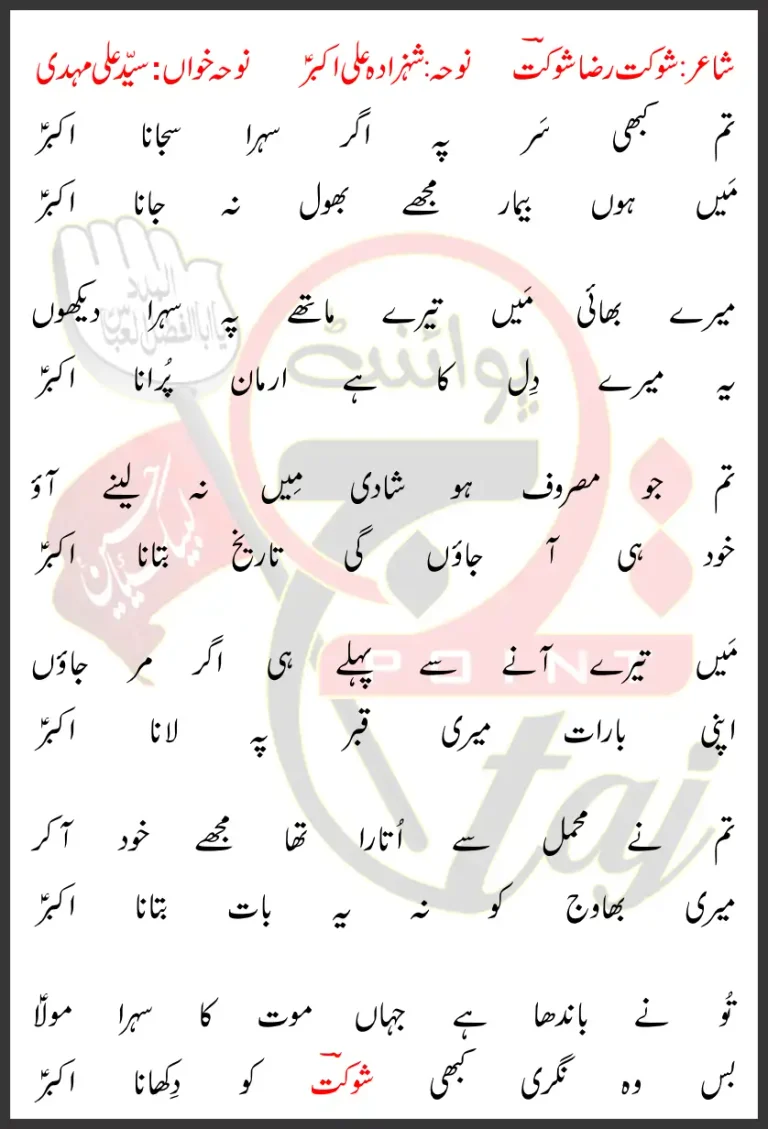 شاعر: شوکت رضا شوکتؔ نوحہ: شہزادہ علی اکبرؑ نوحہ خواں: سیّد علی مہدی
تم کبھی سَر پہ اگر سہرا سجانا اکبرؑ
مَیں ہوں بیمار مجھے بھول نہ جانا اکبرؑ
میرے بھائی مَیں تیرے ماتھے پہ سہرا دیکھوں
یہ میرے دِل کا ہے ارمان پُرانا اکبرؑ
تم جو مصروف ہو شادی مِیں نہ لینے آؤ
خود ہی آ جاؤں گی تاریخ بتانا اکبرؑ
مَیں تیرے آنے سے پہلے ہی اگر مر جاؤں
اپنی بارات میری قبر پہ لانا اکبرؑ
تم نے محمل سے اُتارا تھا مجھے خود آ کر
میری بھاوج کو نہ یہ بات بتانا اکبرؑ
تُو نے باندھا ہے جہاں موت کا سہرا مولاؑ
بس وہ نگری کبھی شوکتؔ کو دِکھانا اکبرؑ
المدد
یا ابا الفضل العباس
لبیک یا حسین
پوائنٹ
تاج
POINT
taj